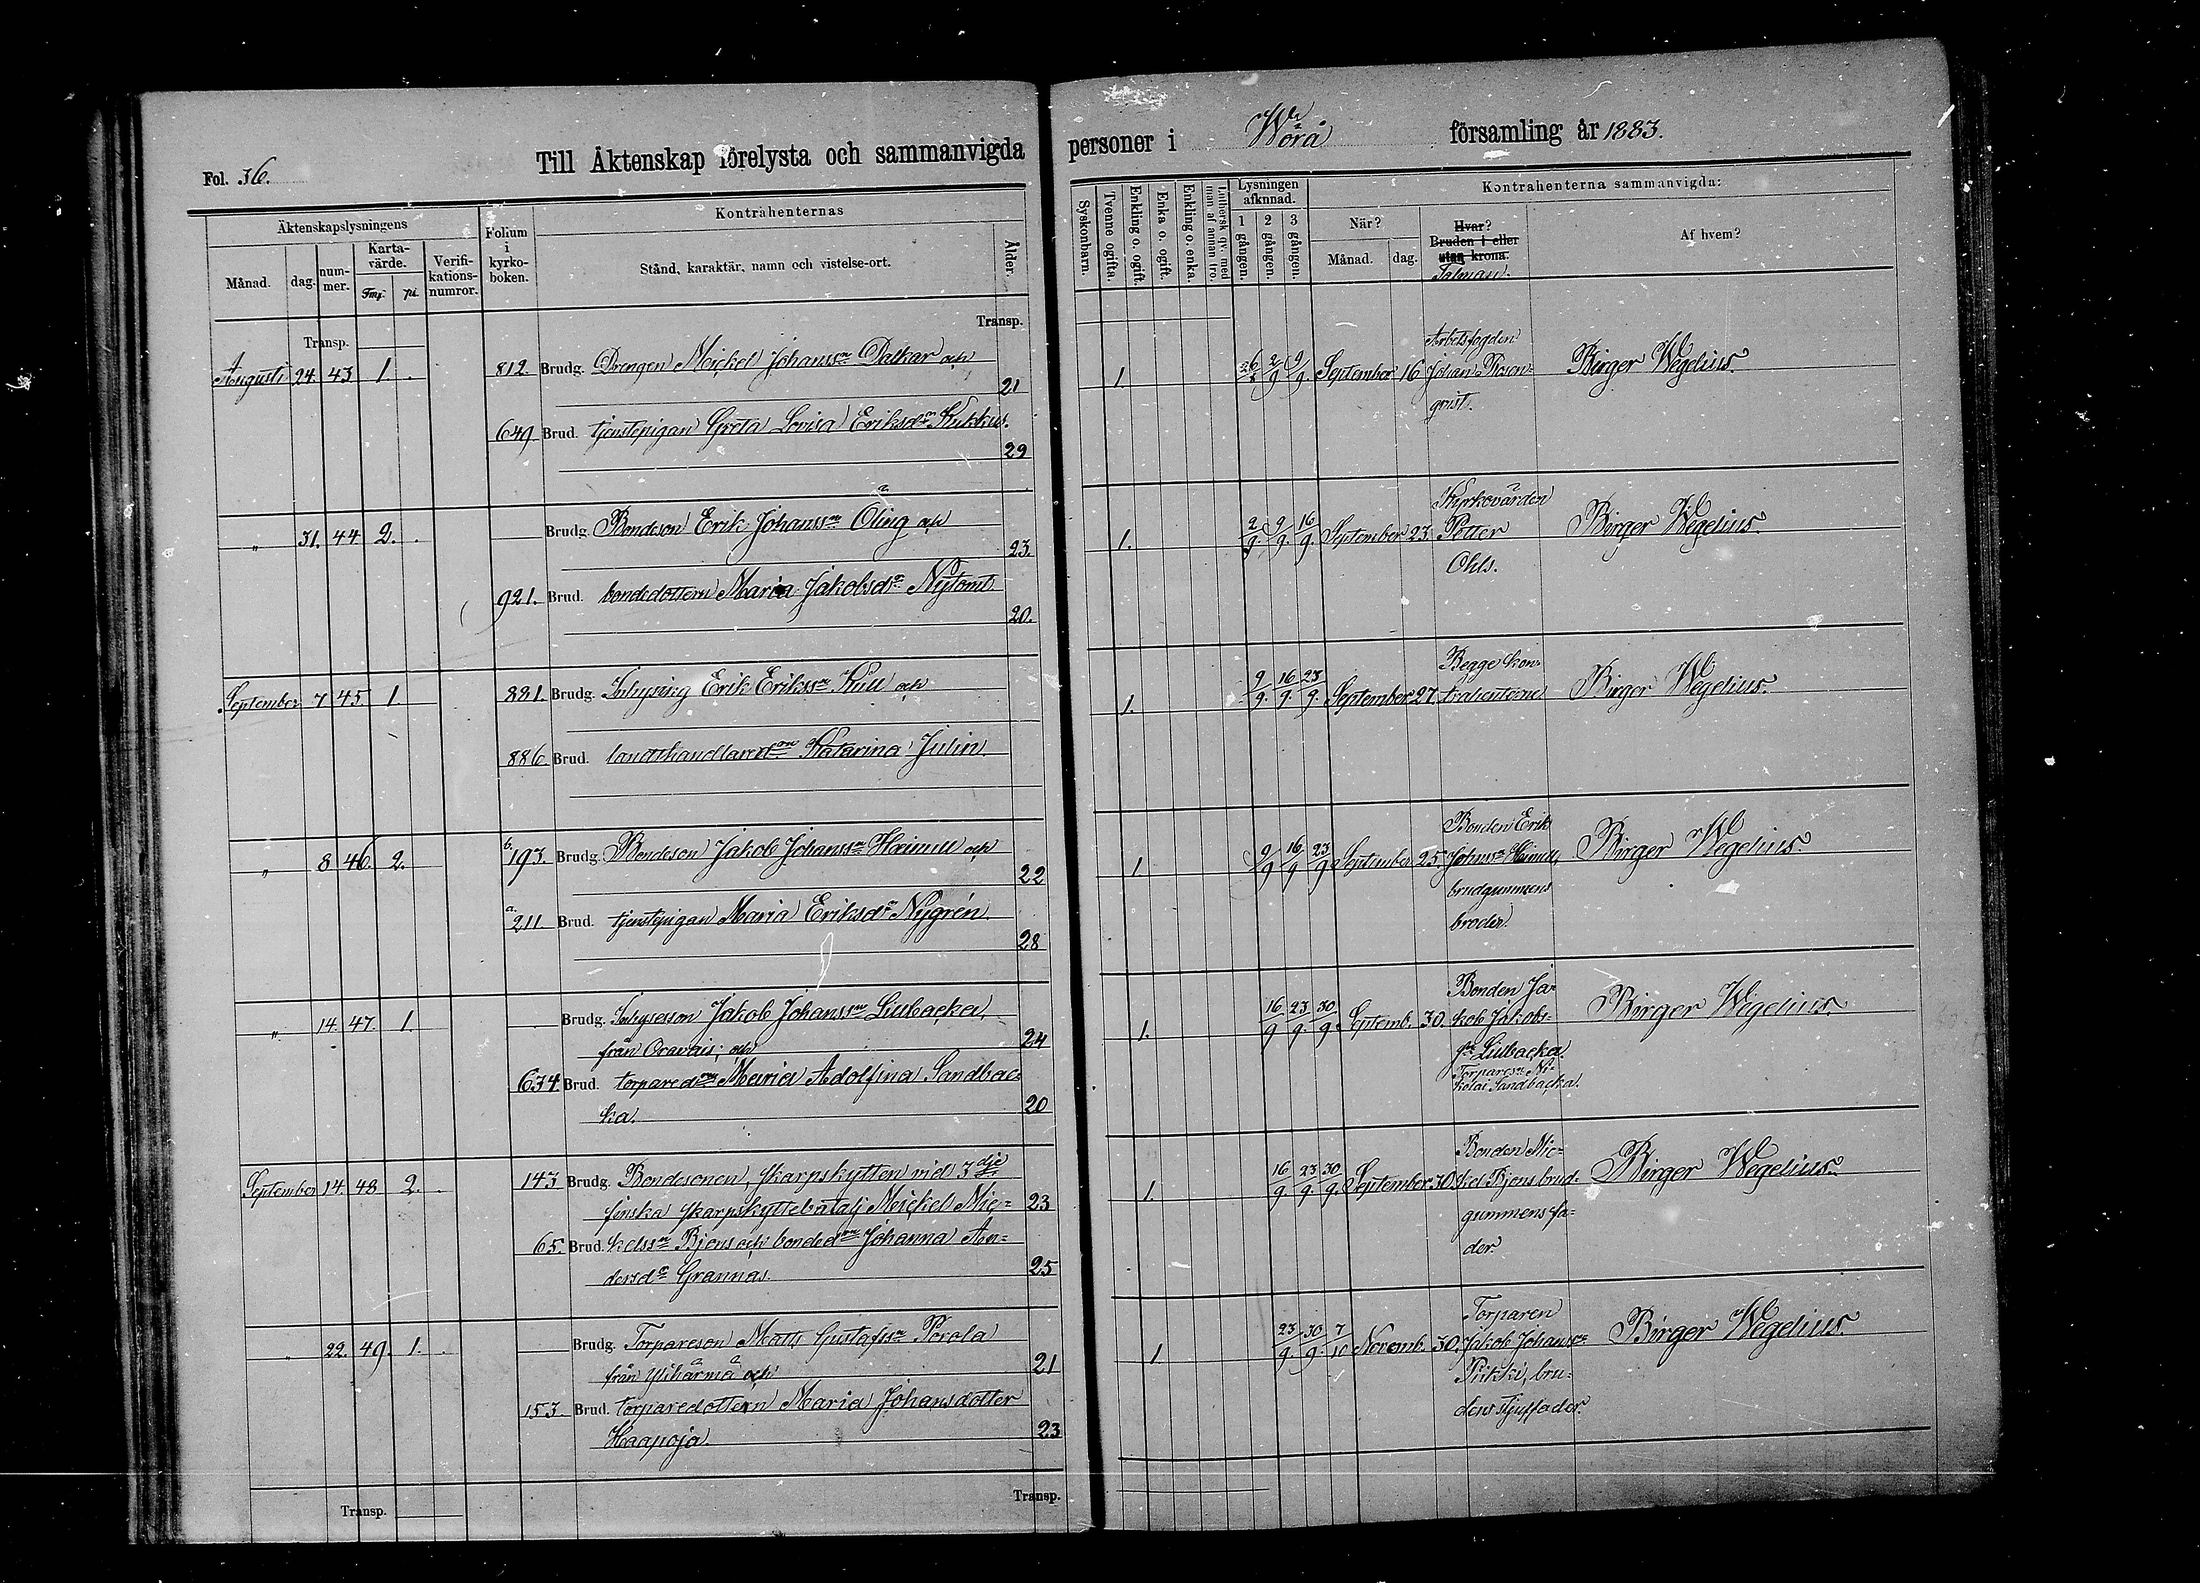 Fol. 36.
Till Äktenskap förelysta och sammanvigda
Äktenskapslysningens
Månad.
dag.
num-
mer.
Karta-
värde.
Fmk.
pi.
Verifi-
kations-
numror.
Folium
i
kyrko-
boken.
Kontrahenternas
Stånd, karaktär, namn och vistelse-ort.
Ålder.
Transp.
Transp.
Augusti 24. 43 1 . 812. Brudg. Drengen Mickel Johanss:n Dalkar och
21
649 Brud. tjenstepigan Greta Lovisa Eriksd:r Kukkus.
29
" 31. 44 2. . Brudg. Bondeson Erik Johanss:n Öling och
23.
921. Brud. bondedottern Maria Jakobsd:r Nytomt.
20.
September 7 45. 1. 881. Brudg. Inhysing Erik Erikss:n Kull och
886. Brud. landthandlared:ren Katarina Julin.
" 8 46. 2. b. 193. Brudg. Bondeson Jakob Johanss:n Heimull och
22
a. 211. Brud. tjenstepigan Maria Eriksd:r Nygrén.
28
" 14. 47. 1. Brudg. Inhyseson Jakob Johanss:n Lusbacka,
från Oravais; och
24
634. Brud. torpared:ren Maria Adolfina Sandbac-
ka.
20
September 14. 48 2. . 143 Brudg. Bondesonen, skarpskytten vid 3dje
finska skarpskyttebatalj Mickel Mic-
23
65. Brud. kelss:n Bjens och bonded:ren Johanna An-
dersd:r Grannas.
25
" 22. 49. 1. . Brudg. Torpareson Matts Gustafss:n Porola
från Ylihärmä och
21
153. Brud. torparedottern Maria Johansdotter
Haapoja.
23
Transp.
Transp.
personer i Wörå församling år 1883.
Syskonbarn.
Tvenne ogifta.
Enkling o. ogift.
Enka o. ogift.
Enkling o. enka.
Luthersk qv. med
man af annan tro.
Lysningen
afknnad.
1 gången.
2 gången.
3 gången.
Kontrahenterna sammanvigda:
När?
Månad.
dag.
Hvar?
Bruden i eller
utan krona.
Talman.
Af hvem?
Arbetsfogden
1. 26/8 2/9 9/9. September 16 Johan Rosen- Birger Wegelius.
qvist.
Kyrkovärden
1. 2/9. 9/9. 16/9. September 23. Petter Birger Wegelius.
Ohls.
Begge kon-
1. 9/9. 16/9. 23/9. September 27. trahenterne Birger Wegelius.
Bonden Erik
1 9/9 16/9 23/9 September 25. Johanss:n Heimull, Birger Wegelius.
brudgummens
broder.
Bonden Ja-
1. 16/9 23/9. 30/9 Septemb. 30. kob Jakobs- Birger Wegelius.
s:n Lusbacka.
Torpares:n Ni-
kolai Sandbacka.
Bonden Mic-
1. 16/9. 23/9. 30/9. September 30. kel Bjens brud- Birger Wegelius.
gummens fa-
der.
Torparen
1. 23/9. 30/9. 7/10 Novemb. 30. Jakob Johanss:n Birger Wegelius.
Pirkki, bru-
dens stjuffader.